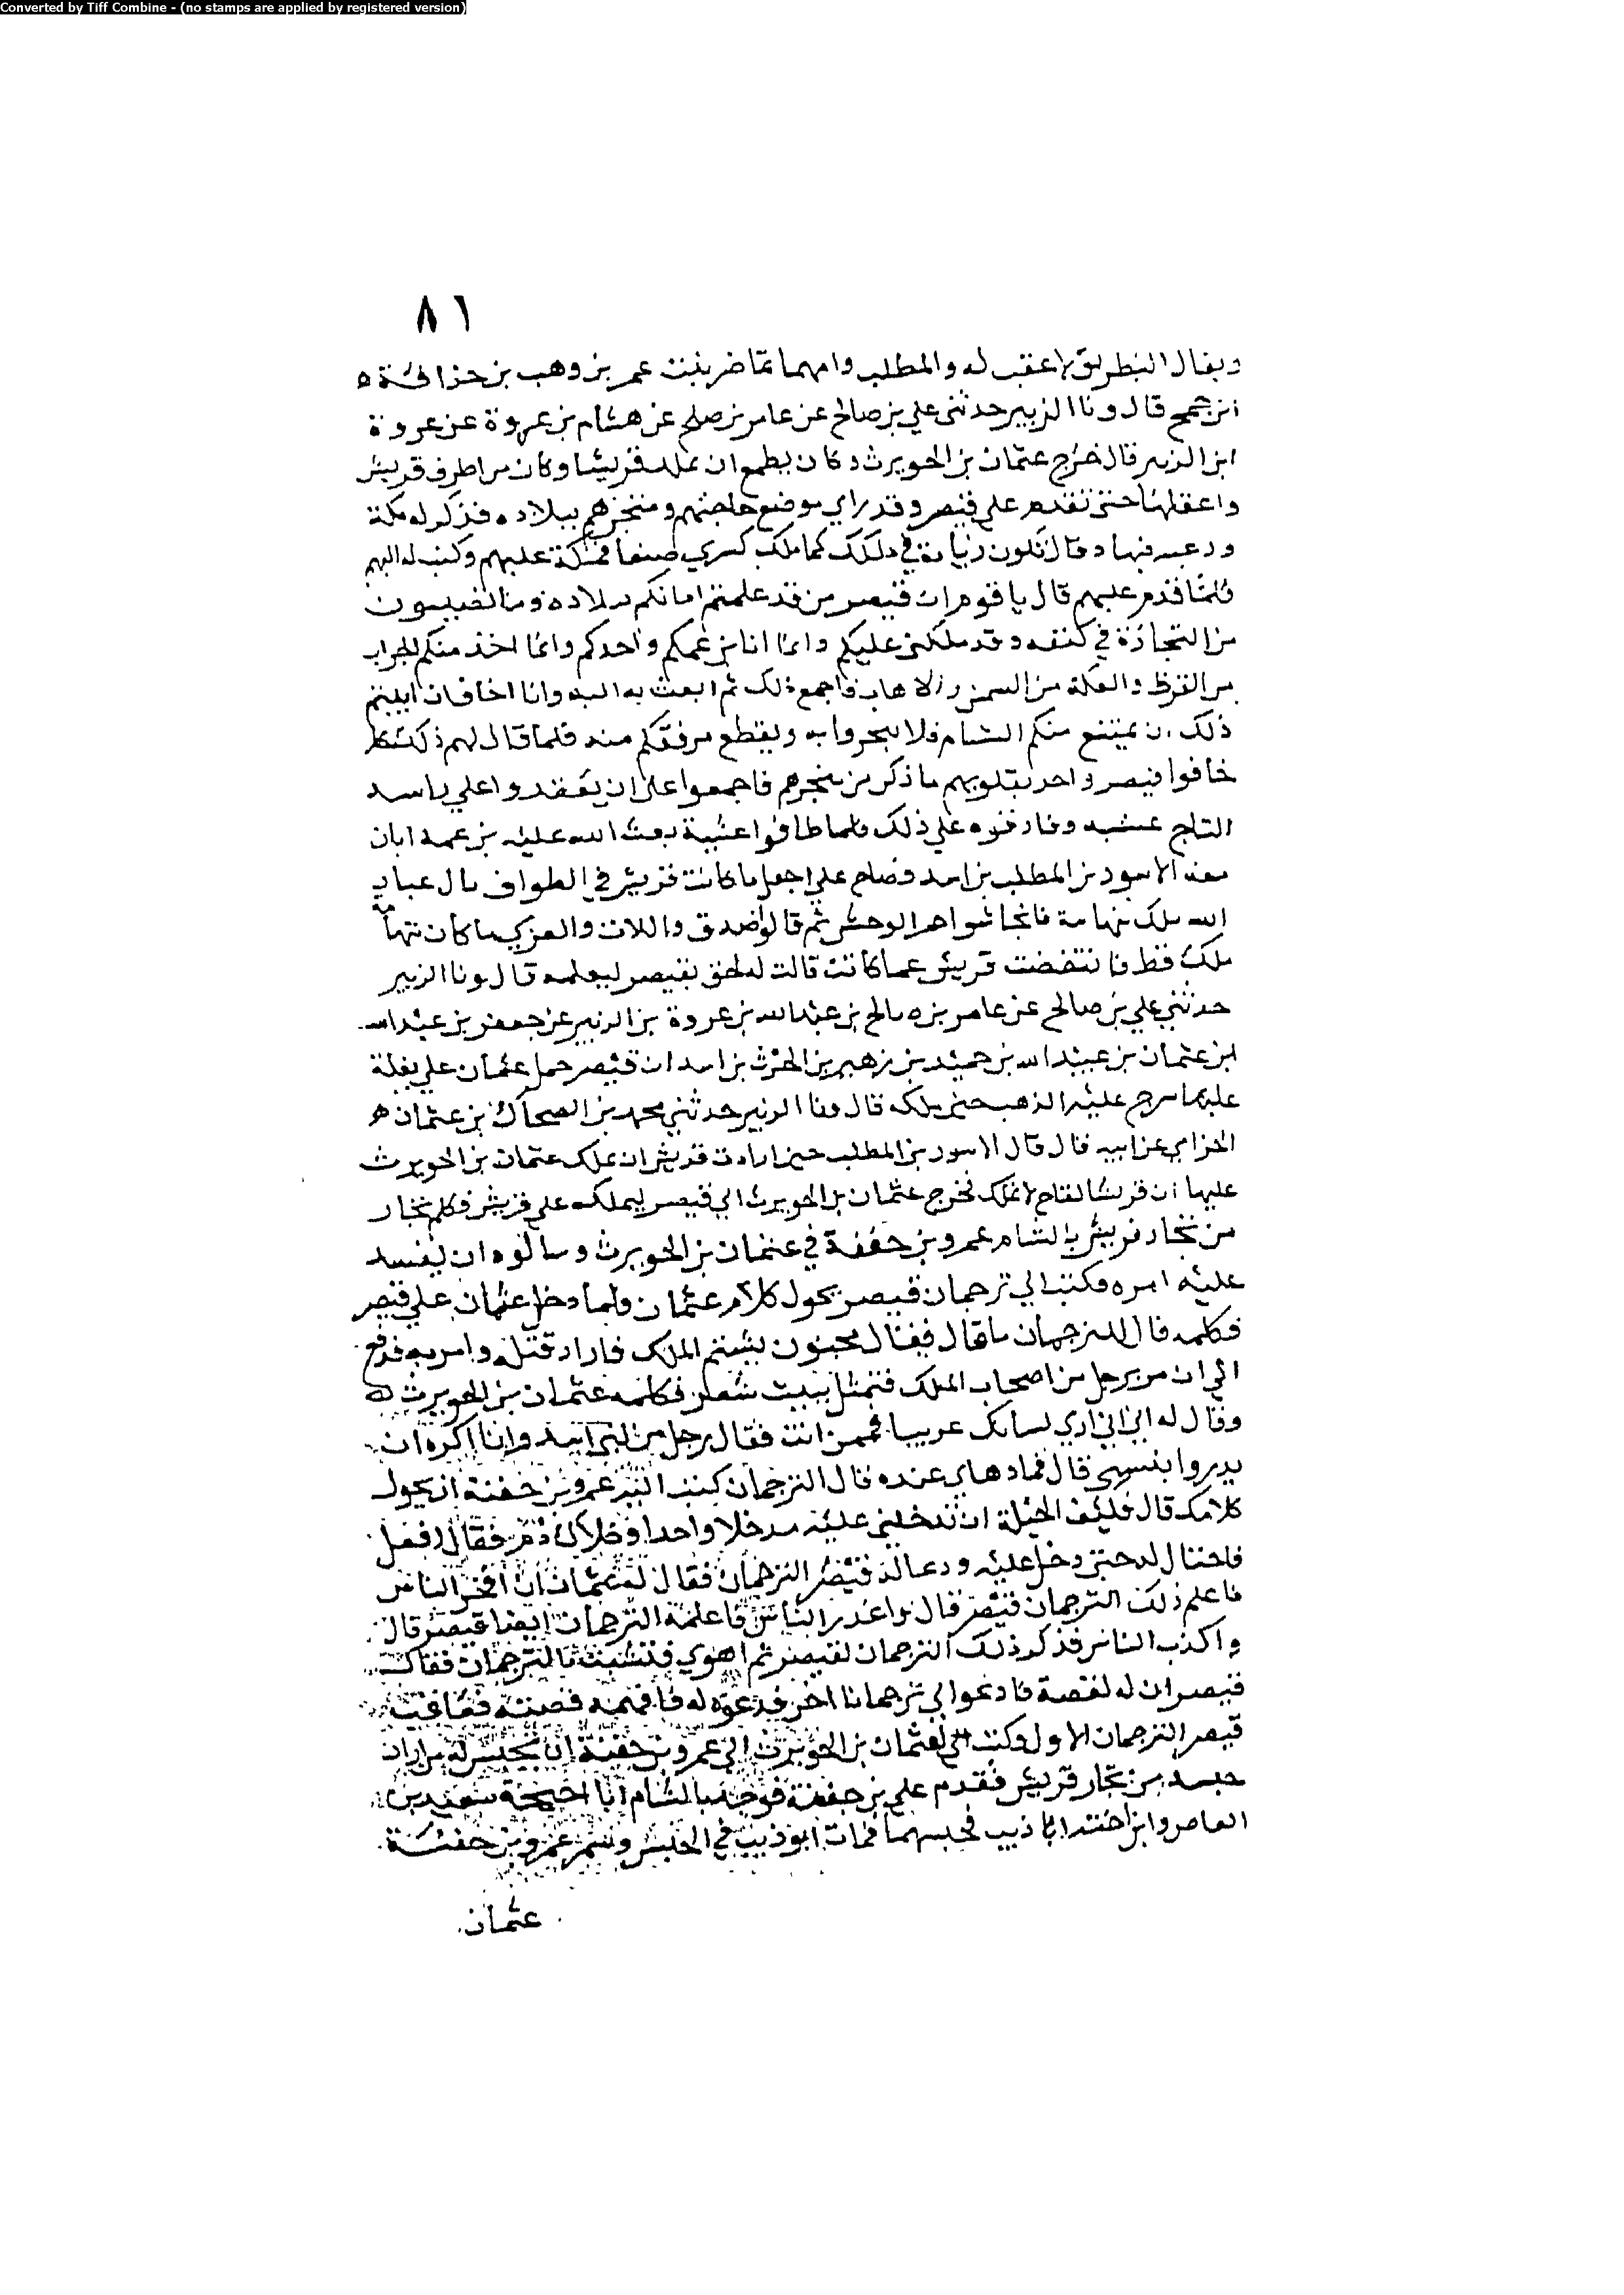 Converted by Tiff Combine - (no stamps are applied by registered version)
٨١
ويقال البطريق لا عقب له والمطلب وامهما تماضر بنت عمير بن وهب بن حذافة ه
ابن جمح قال ونا الزبير حدثني علي بن صالح عن عامر بن صلح عن هشام بن عروة عن عروة
ابن الزبير قال خرج عثمان بن الحويرث وكان يطمع ان يملك قريشا وكان من اطرف قريش
واعقلها حتى تقدم على قيصر وقد راي موضع حاجتهم ومتجرهم ببلاده فذكر له مكة
ورغبه فيها وقال تكون زيادة في ملكك كما ملك كسري صنعا فملكه عليهم وكتب له اليهم
فلما قدم عليهم قال يا قوم ان قيصر من قد علمتم امانكم ببلاده وما تصيبون
من التجارة في كنفه وقد ملكني عليكم وانما انا بن عمكم واحدكم وانما اخذ منكم الجراب
من القرظ والعكة من السمن والاهاب فاجمع ذلك ثم ابعث به اليه وانا اخاف ان ابيتم
ذلك ان يمتنع منكم الشام فلا تتجروا به ويقطع مرفقكم منه فلما قال لهم ذلك
خافوا قيصر واخذ بقلوبهم ما ذكر من متجرهم فاجمعوا على ان يعقدوا على راسه
التاج عشية وفارقوه على ذلك فلما طافوا عشية بعث الله عليه بن عمه ابان
معه الاسود بن المطلب بن اسد فصاح على اجعل ما كانت قريش في الطواف يال عباد
الله ملك بتهامة فانحاشوا انحياش الوحش ثم قالوا صدق واللات والعزي ما كان بتهامة
ملك قط فانتقضت قريش عما كانت قالت له ولحق بقيصر ليعلمه قال ونا الزبير
حدثني علي بن صالح عن عامر بن صالح بن عبد الله بن عروة بن الزبير عن جعفر بن عبد الله
ابن عثمان بن عبيد الله بن حميد بن زهير بن الحرث بن اسد ان قيصر حمل عثمان على بغلة
عليها سرج عليه الذهب حين ملكه قال ونا الزبير حدثني محمد بن الضحاك بن عثمان ه
الحزامي عن ابيه قال قال الاسود بن المطلب حين ارادت قريش ان تملك عثمان بن الحويرث
عليها ان قريشا لقاح لا تملك فخرج عثمان بن الحويرث الى قيصر ليملكه على قريش فكلم تجار
من تجار قريش بالشام عمرو بن جفنة في عثمان بن الحويرث وسالوه ان يفسد
عليه امره فكتب الي ترجمان قيصر يحول كلام عثمان فلما دخل عثمان على قيصر
فكلمه قال للترجمان ما قال فقال مجنون يشتم الملك فاراد قتله وامر به فدفع
الي ان مر برجل من اصحاب الملك فتمثل ببيت شعر فكلمه عثمان بن الحويرث
وقال له اني اري لسانك عربيا فممن انت فقال رجل من بني اسد وانا اكره ان
يدروا بنسبي قال فما دهاني عنده قال الترجمان كتب اليه عمرو بن جفنة ان يحول
كلامك قال فكيف الحيلة ان تدخلني عليه مدخلا واحدا وخلاك ذم فقال افعل
فاحتال له حتى دخل عليه ودعا له قيصر الترجمان فقال له عثمان ان افجر الناس
فاعلم ذلك الترجمان قيصر قال واغدر الناس فاعلمه الترجمان ايضا قيصر قال
واكذب الناس فذكر ذلك الترجمان لقيصر ثم اهوي فتشبث بالترجمان فقال
قيصر ان له لقصة فادعوا لي ترجمانا اخر فدعوه له فافهمه قصته فعاقب
قيصر الترجمان الاول وكتب لعثمان بن الحويرث الى عمرو بن جفنة ان يحبس له من اراد
حبسه من تجار قريش فقدم على بن جفنة فوجد بالشام ابا احيحة سعيد بن
العاص وابن اخته ابا ذيب فحبسهما فمات ابو ذيب في الحبس وسم عمرو بن جفنة
عثمان